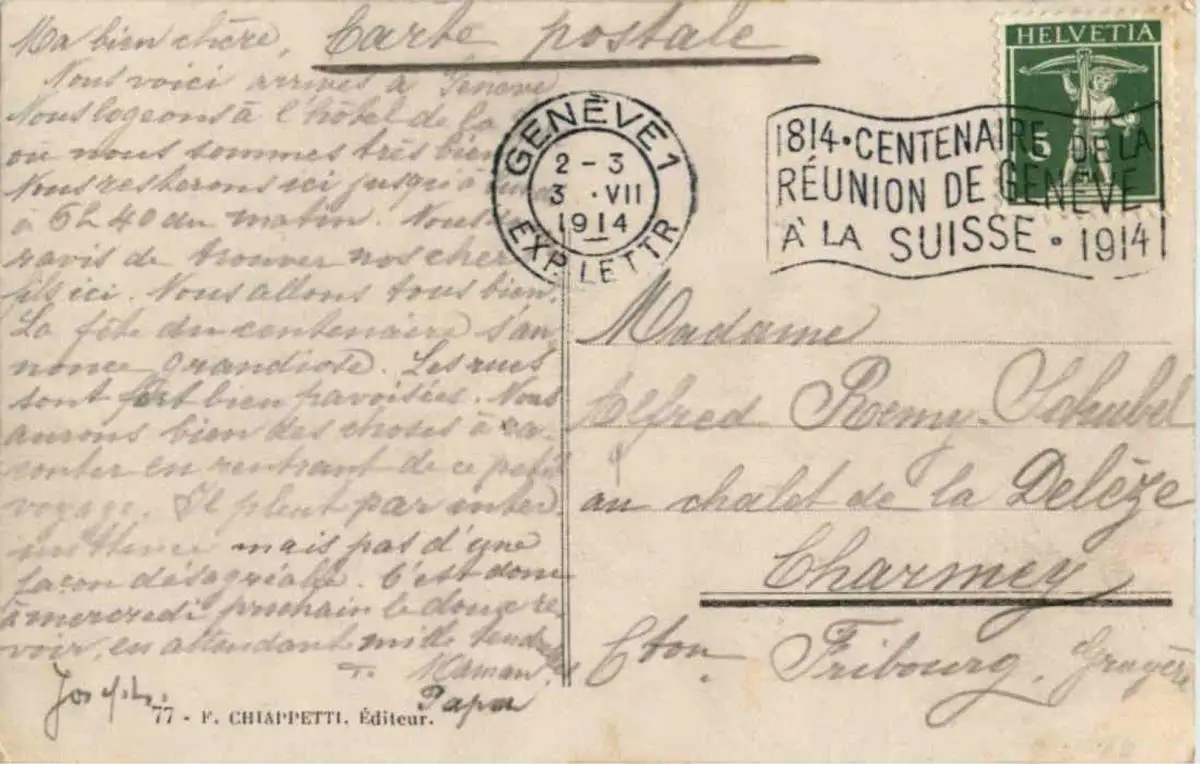 Carte postale
Ma bien chère,
Nous voici arrivés à Genève
Nous logeons à l'hôtel de la
où nous sommes très bien
Nous resterons ici jusqu'à
à 6h 40 du matin. Nous
ravis de trouver nos chers
fils ici. Nous allons tous bien.
La fête du centenaire s'an-
nonce grandiose. Les rues
sont fort bien pavoisées. Nous
aurons bien des choses à ra-
conter en rentrant de ce petit
voyage. Il pleut par inter
mittence mais pas d'une
façon désagréable. C'est donc
à mercredi prochain le doux re
voir, en attendant mille tendr
Maman
Papa
Joseph.
77 - F. CHIAPPETTI. Éditeur.
GENÈVE 1
2 - 3
3 . VII
1914
EXP. LETTR
1814 • CENTENAIRE DE LA
RÉUNION DE GENÈVE
À LA SUISSE • 1914
HELVETIA
5
Madame
Alfred Remy-Schubel
au chalet de la Delèze
Charmey
Cton. Fribourg, Gruyère